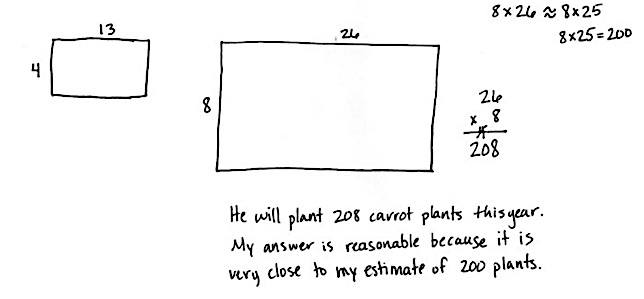 8 x 26 ≈ 8 x 25
8 x 25 = 200
13
4
26
8
26
x 8
208
He will plant 208 carrot plants this year.
My answer is reasonable because it is
very close to my estimate of 200 plants.